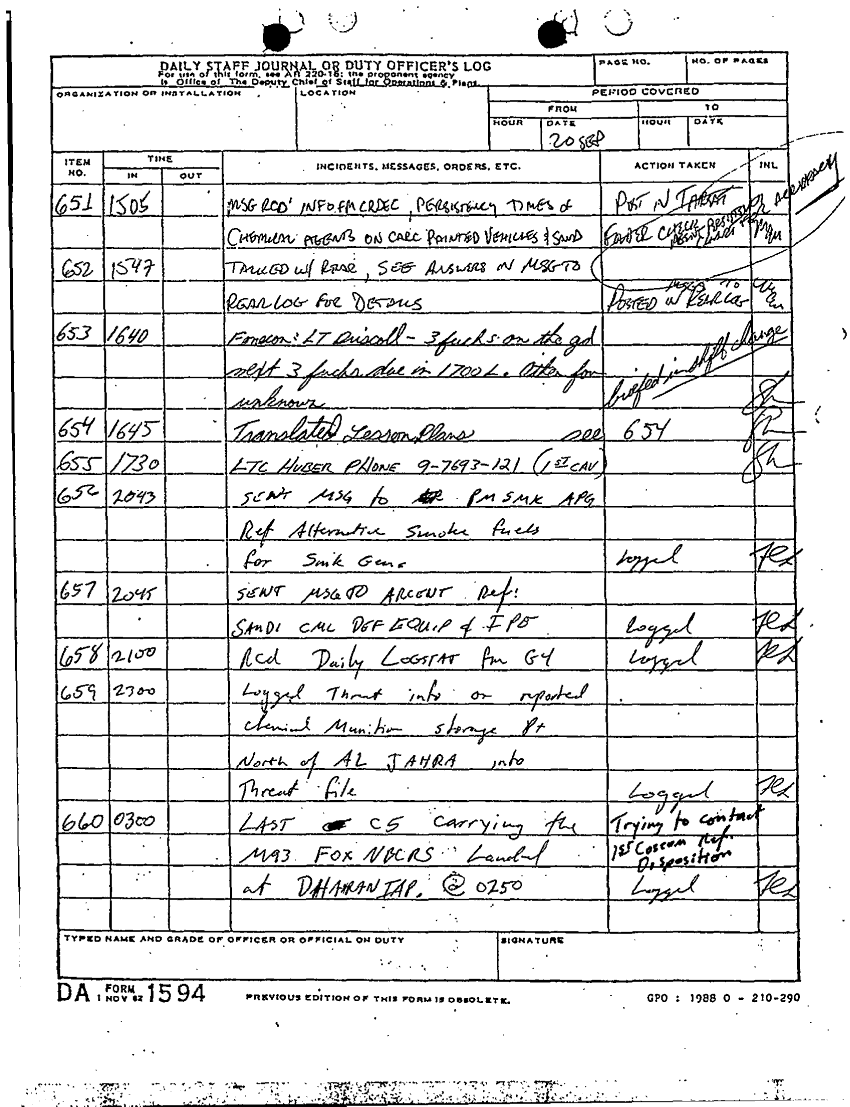 DAILY STAFF JOURNAL OR DUTY OFFICER'S LOG
For use of this form, see AR 220-15; the proponent agency
is Office of The Deputy Chief of Staff for Operations & Plans.
PAGE NO.
NO. OF PAGES
ORGANIZATION OR INSTALLATION
LOCATION
PERIOD COVERED
FROM
TO
HOUR
DATE
HOUR
DATE
20 SEP
ITEM NO.
TIME
IN
OUT
INCIDENTS, MESSAGES, ORDERS, ETC.
ACTION TAKEN
INL
651 1505 MSG RCD' INFO FM CRDEC, PERSISTENCY TIMES of POST IN THREAT
CHEMICAL AGENTS ON CARC PAINTED VEHICLES & SAND CHECK FOR ACCURACY
652 1547 TALKED W/ REAR, SEE ANSWERS IN MSG TO MSGS TO
REAR LOG FOR DETAILS POSTED IN REAR LOG
653 1640 Fonecon: LT Driscoll - 3 fuchs on the gd
next 3 fuchs due in 1700 L. Other four briefed in shift change
unknown
654 1645 Translated Lesson Plans see 654
655 1730 LTC HUBER PHONE 9-7693-121 (1ST CAV)
656 2043 SENT MSG to PM SMK APG
Ref Alternative Smoke fuels
for Smk Gens Logged
657 2045 SENT MSG TO ARCENT Ref:
SAUDI CML DEF EQUIP & IPE Logged
658 2100 Rcd Daily LOGSTAT fm G4 Logged
659 2300 Logged Threat info on reported
chemical Munition storage Pt
North of AL JAHRA into
Threat file Logged
660 0300 LAST C5 Carrying the Trying to contact
M93 FOX NBCRS Landed 1st Coscom Ref.
Disposition
at DHAHRAN IAP. @ 0250 Logged
TYPED NAME AND GRADE OF OFFICER OR OFFICIAL ON DUTY
SIGNATURE
DA FORM 1 NOV 62 1594
PREVIOUS EDITION OF THIS FORM IS OBSOLETE.
GPO : 1988 O - 210-290